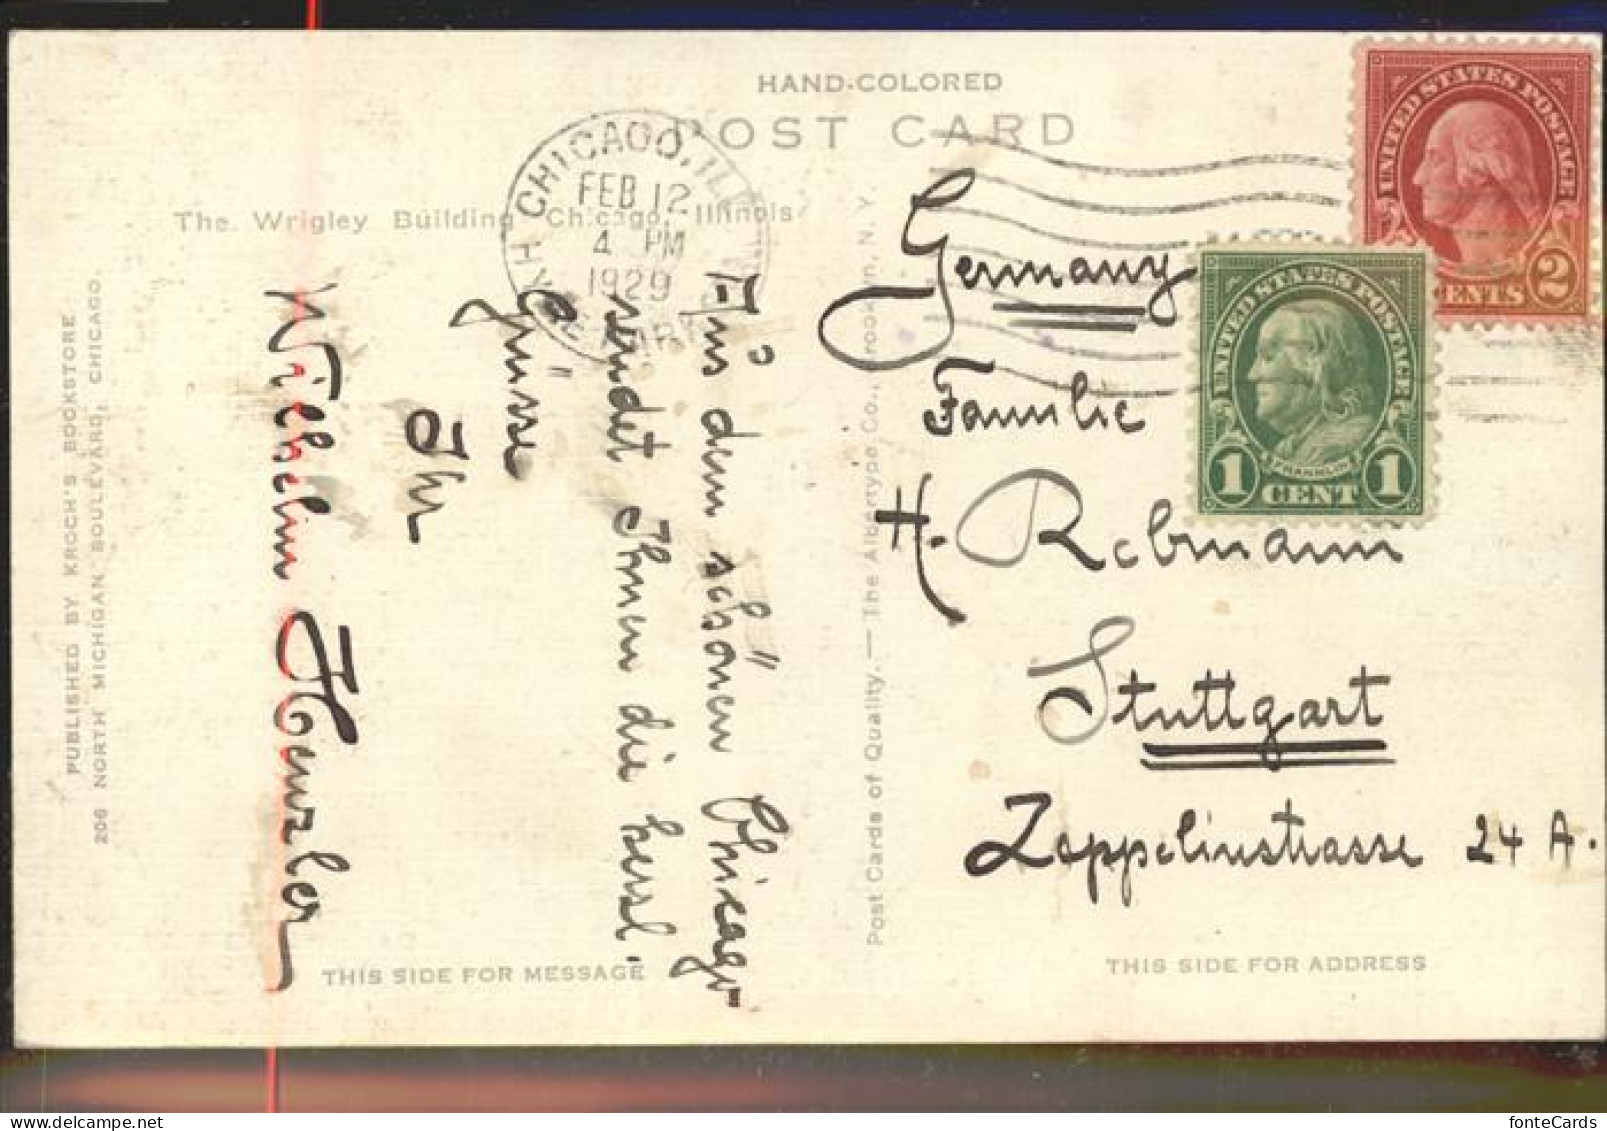 HAND-COLORED
POST CARD
The Wrigley Building, Chicago, Illinois
CHICAGO, ILL.
FEB 12
4 PM
1929
UNITED STATES POSTAGE
2
CENTS 2
UNITED STATES POSTAGE
FRANKLIN
1 CENT 1
Germany
Familie
H. Rebmann
Stuttgart
Zeppelinstrasse 24 A.
Aus dem schönen Chicago
sendet Ihnen die herzl.
Grüsse
Ihr
Wilhelm Henzler
PUBLISHED BY KROCH'S BOOKSTORE
206 NORTH MICHIGAN BOULEVARD, CHICAGO.
Post Cards of Quality. — The Albertype Co., Brooklyn, N. Y.
THIS SIDE FOR MESSAGE
THIS SIDE FOR ADDRESS
fonteCards